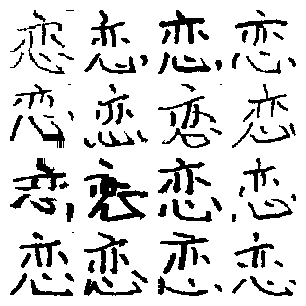 恋恋恋恋
恋恋恋恋
恋恋恋恋
恋恋恋恋